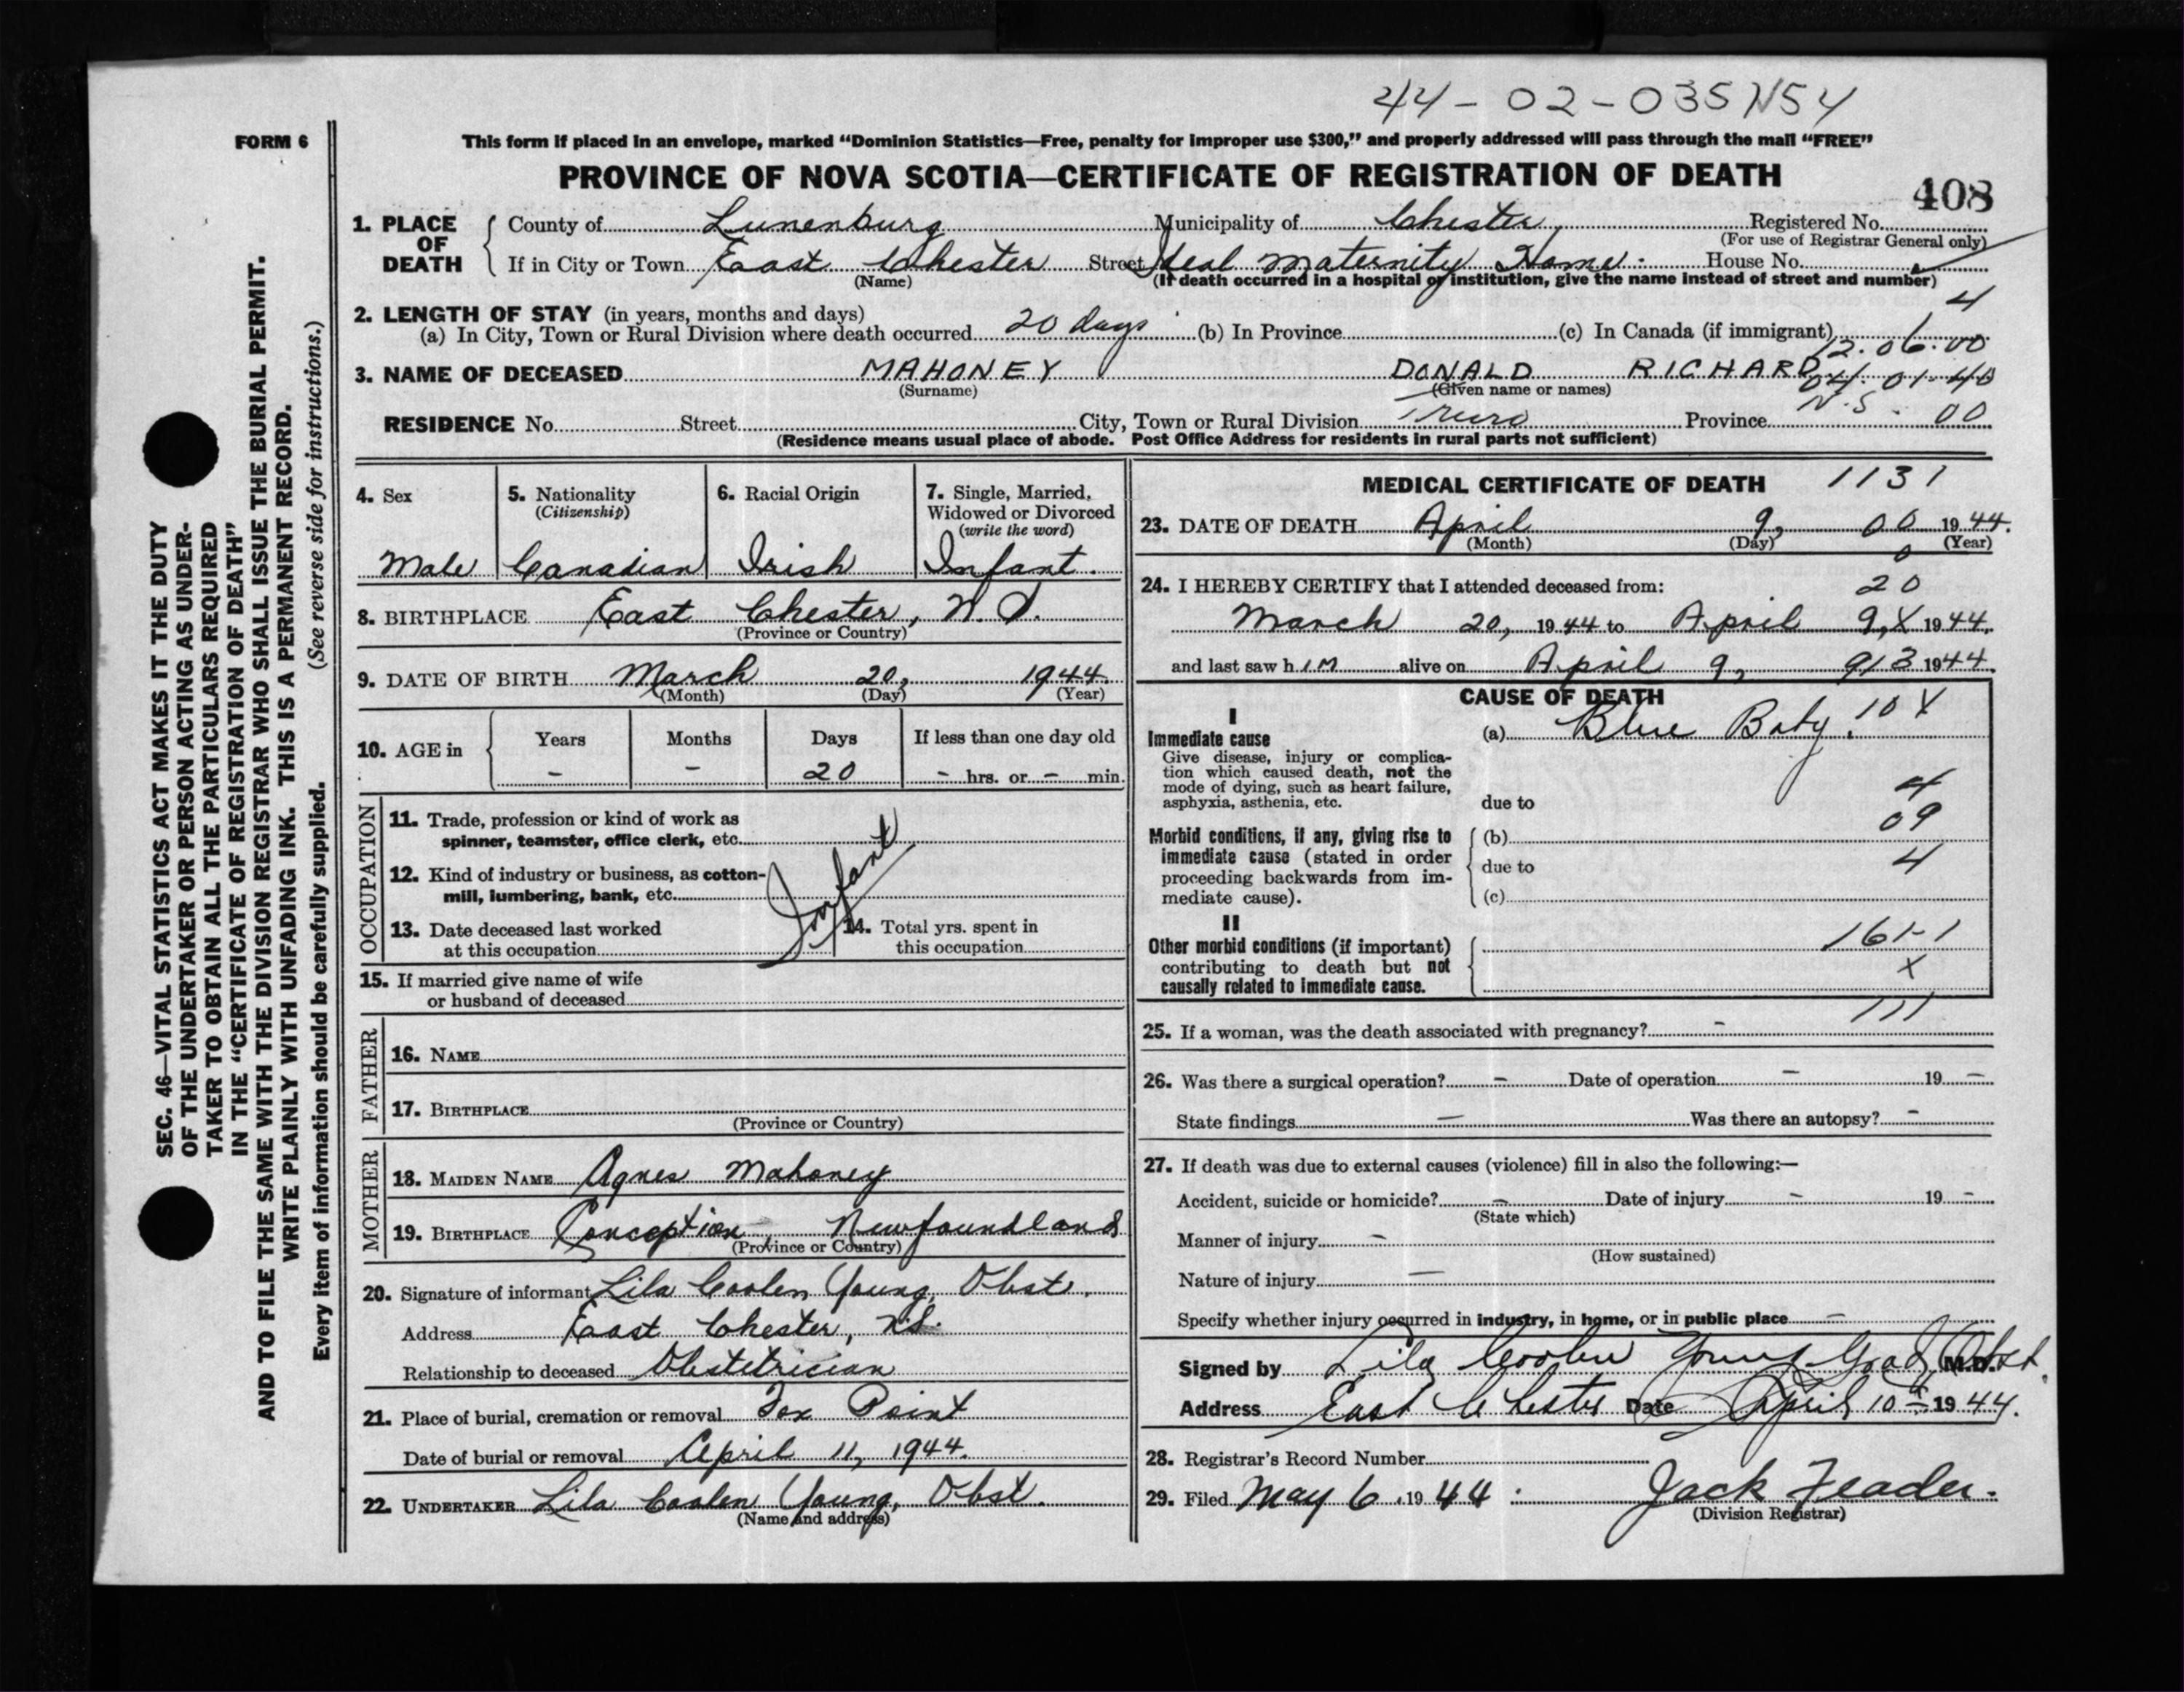 44-02-035154
FORM 6
This form if placed in an envelope, marked “Dominion Statistics—Free, penalty for improper use $300,” and properly addressed will pass through the mail “FREE”
PROVINCE OF NOVA SCOTIA—CERTIFICATE OF REGISTRATION OF DEATH
408
1. PLACE OF DEATH
County of Lunenburg Municipality of Chester Registered No.
(For use of Registrar General only)
If in City or Town East Chester Street Ideal Maternity Home. House No.
(Name) (If death occurred in a hospital or institution, give the name instead of street and number)
4
2. LENGTH OF STAY (in years, months and days)
(a) In City, Town or Rural Division where death occurred 20 days (b) In Province (c) In Canada (if immigrant) 6
12.06.00
3. NAME OF DECEASED MAHONEY DONALD RICHARD 04.01.40
(Surname) (Given name or names)
RESIDENCE No. Street City, Town or Rural Division Truro Province N.S. 00
(Residence means usual place of abode. Post Office Address for residents in rural parts not sufficient)
4. Sex Male
5. Nationality (Citizenship) Canadian
6. Racial Origin Irish
7. Single, Married, Widowed or Divorced (write the word) Infant.
8. BIRTHPLACE East Chester, N.S.
(Province or Country)
9. DATE OF BIRTH March 20, 1944
(Month) (Day) (Year)
10. AGE in Years Months Days If less than one day old
- - 20 - hrs. or - min.
OCCUPATION
11. Trade, profession or kind of work as
spinner, teamster, office clerk, etc.
12. Kind of industry or business, as cotton-
mill, lumbering, bank, etc.
Infant
13. Date deceased last worked
at this occupation
14. Total yrs. spent in
this occupation
15. If married give name of wife
or husband of deceased
FATHER
16. NAME
17. BIRTHPLACE
(Province or Country)
MOTHER
18. MAIDEN NAME Agnes Mahoney
19. BIRTHPLACE Conception, Newfoundland
(Province or Country)
20. Signature of informant Lila Coolen Young, Obst.
Address East Chester, N.S.
Relationship to deceased Obstetrician
21. Place of burial, cremation or removal Fox Point
Date of burial or removal April 11, 1944.
22. UNDERTAKER Lila Coolen Young, Obst.
(Name and address)
MEDICAL CERTIFICATE OF DEATH 1131
23. DATE OF DEATH April 9, 00 1944.
(Month) (Day) (Year)
0
24. I HEREBY CERTIFY that I attended deceased from: 20
March 20, 1944 to April 9, X 1944,
and last saw h im alive on April 9, 913 1944.
CAUSE OF DEATH
I
Immediate cause
Give disease, injury or complica-
tion which caused death, not the
mode of dying, such as heart failure,
asphyxia, asthenia, etc.
(a) Blue Baby. 10 X
due to 4
09
Morbid conditions, if any, giving rise to
immediate cause (stated in order
proceeding backwards from im-
mediate cause).
(b)
due to 4
(c)
II
Other morbid conditions (if important)
contributing to death but not
causally related to immediate cause.
161-1
X
111
25. If a woman, was the death associated with pregnancy? -
26. Was there a surgical operation? - Date of operation - 19 -
State findings - Was there an autopsy? -
27. If death was due to external causes (violence) fill in also the following:—
Accident, suicide or homicide? - Date of injury - 19 -
(State which)
Manner of injury -
(How sustained)
Nature of injury -
Specify whether injury occurred in industry, in home, or in public place -
Signed by Lila Coolen Young Grad. Obst. M.D.
Address East Chester Date April 10th 1944.
28. Registrar's Record Number
29. Filed May 6 1944. Jack Feader.
(Division Registrar)
SEC. 46—VITAL STATISTICS ACT MAKES IT THE DUTY
OF THE UNDERTAKER OR PERSON ACTING AS UNDER-
TAKER TO OBTAIN ALL THE PARTICULARS REQUIRED
IN THE “CERTIFICATE OF REGISTRATION OF DEATH”
AND TO FILE THE SAME WITH THE DIVISION REGISTRAR WHO SHALL ISSUE THE BURIAL PERMIT.
WRITE PLAINLY WITH UNFADING INK. THIS IS A PERMANENT RECORD.
Every item of information should be carefully supplied. (See reverse side for instructions.)